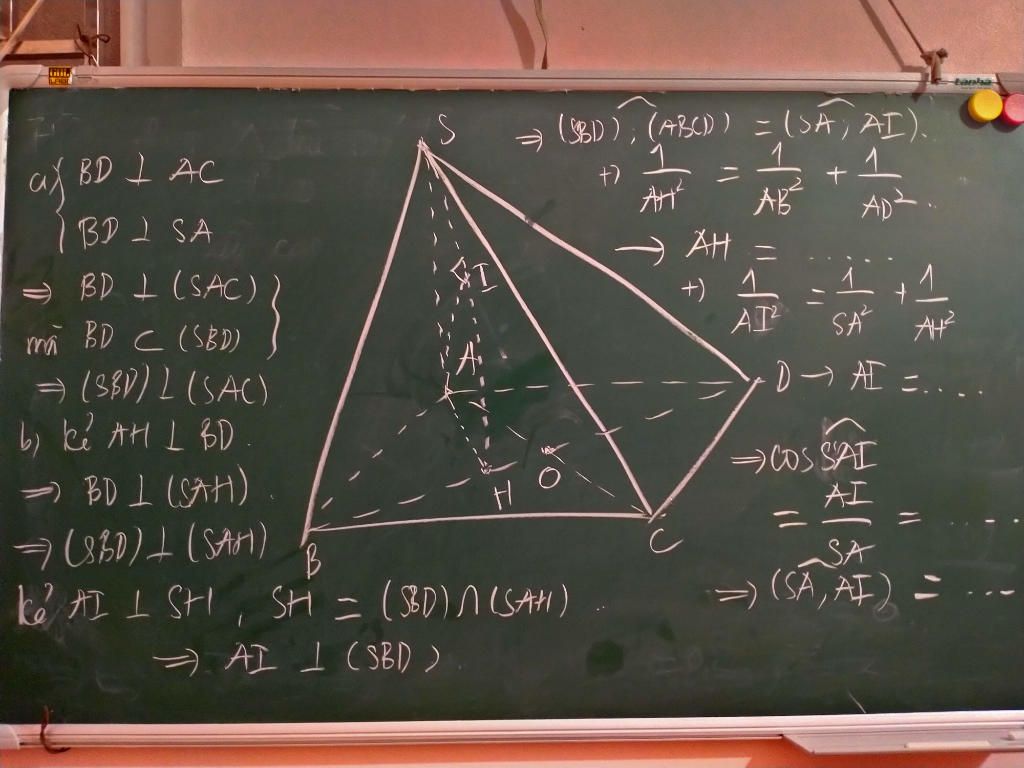 a) BD ⊥ AC
BD ⊥ SA
⇒ BD ⊥ (SAC)
mà BD ⊂ (SBD)
⇒ (SBD) ⊥ (SAC)
b) kẻ AH ⊥ BD.
⇒ BD ⊥ (SAH).
⇒ (SBD) ⊥ (SAH)
kẻ AI ⊥ SH, SH = (SBD) ∩ (SAH) ..
⇒ AI ⊥ (SBD)
S
I
A
D
H
O
B
C
⇒ (SBD); (ABCD) = (SA; AI).
+) 1/AH² = 1/AB² + 1/AD² ..
→ AH = ......
+) 1/AI² = 1/SA² + 1/AH²
→ AI = ....
⇒ cos SAI
= AI/SA = ....
⇒ (SA, AI) = ...
tanha